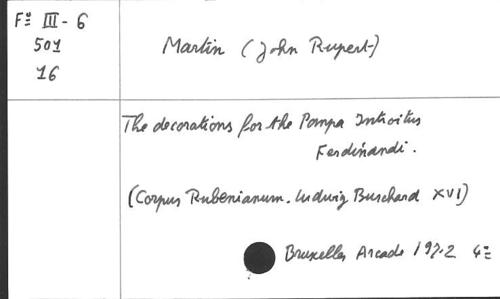 Fº III - 6
501
16
Martin (John Rupert)
The decorations for the Pompa Introitus
Ferdinandi.
(Corpus Rubenianum. Ludwig Burchard XVI)
Bruxelles Arcade 1972 4º